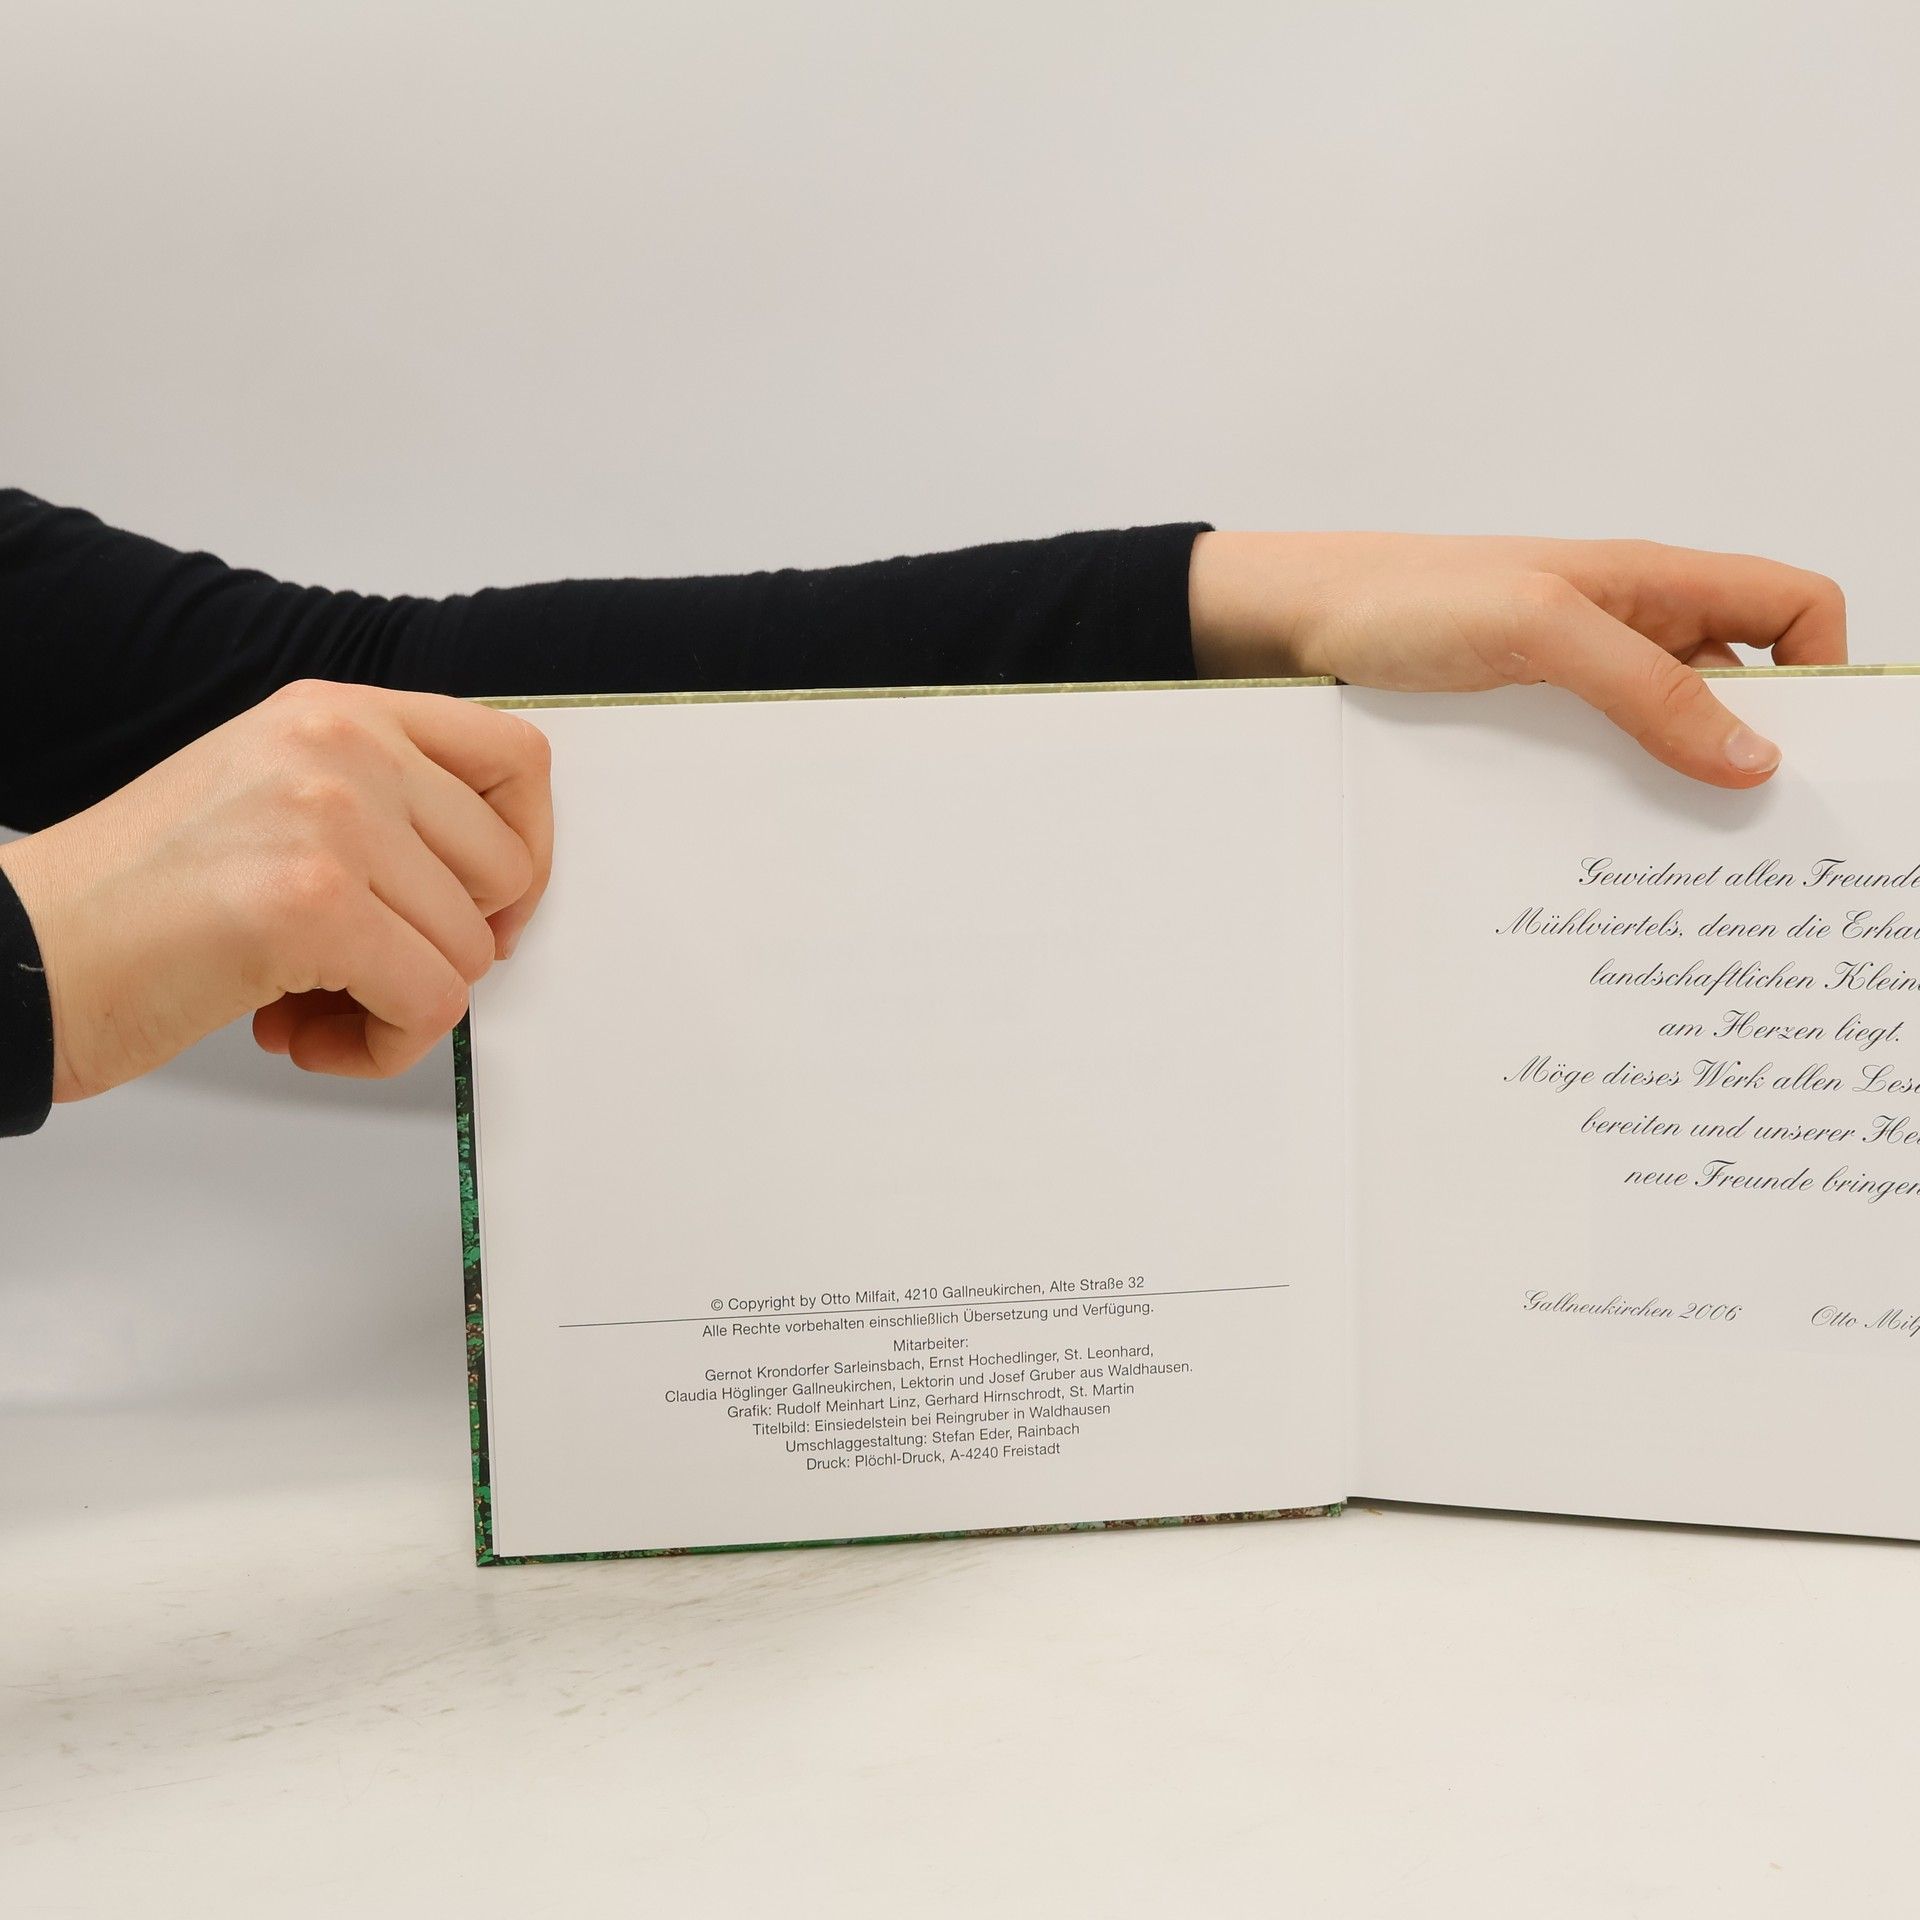 © Copyright by Otto Milfait, 4210 Gallneukirchen, Alte Straße 32
Alle Rechte vorbehalten einschließlich Übersetzung und Verfügung.
Mitarbeiter:
Gernot Krondorfer Sarleinsbach, Ernst Hochedlinger, St. Leonhard,
Claudia Höglinger Gallneukirchen, Lektorin und Josef Gruber aus Waldhausen.
Grafik: Rudolf Meinhart Linz, Gerhard Hirnschrodt, St. Martin
Titelbild: Einsiedelstein bei Reingruber in Waldhausen
Umschlaggestaltung: Stefan Eder, Rainbach
Druck: Plöchl-Druck, A-4240 Freistadt
Gewidmet allen Freunde
Mühlviertels, denen die
landschaftlichen
am Herzen liegt.
Möge dieses Werk allen
bereiten und unserer
neue Freunde bringen
Gallneukirchen 2006 Otto